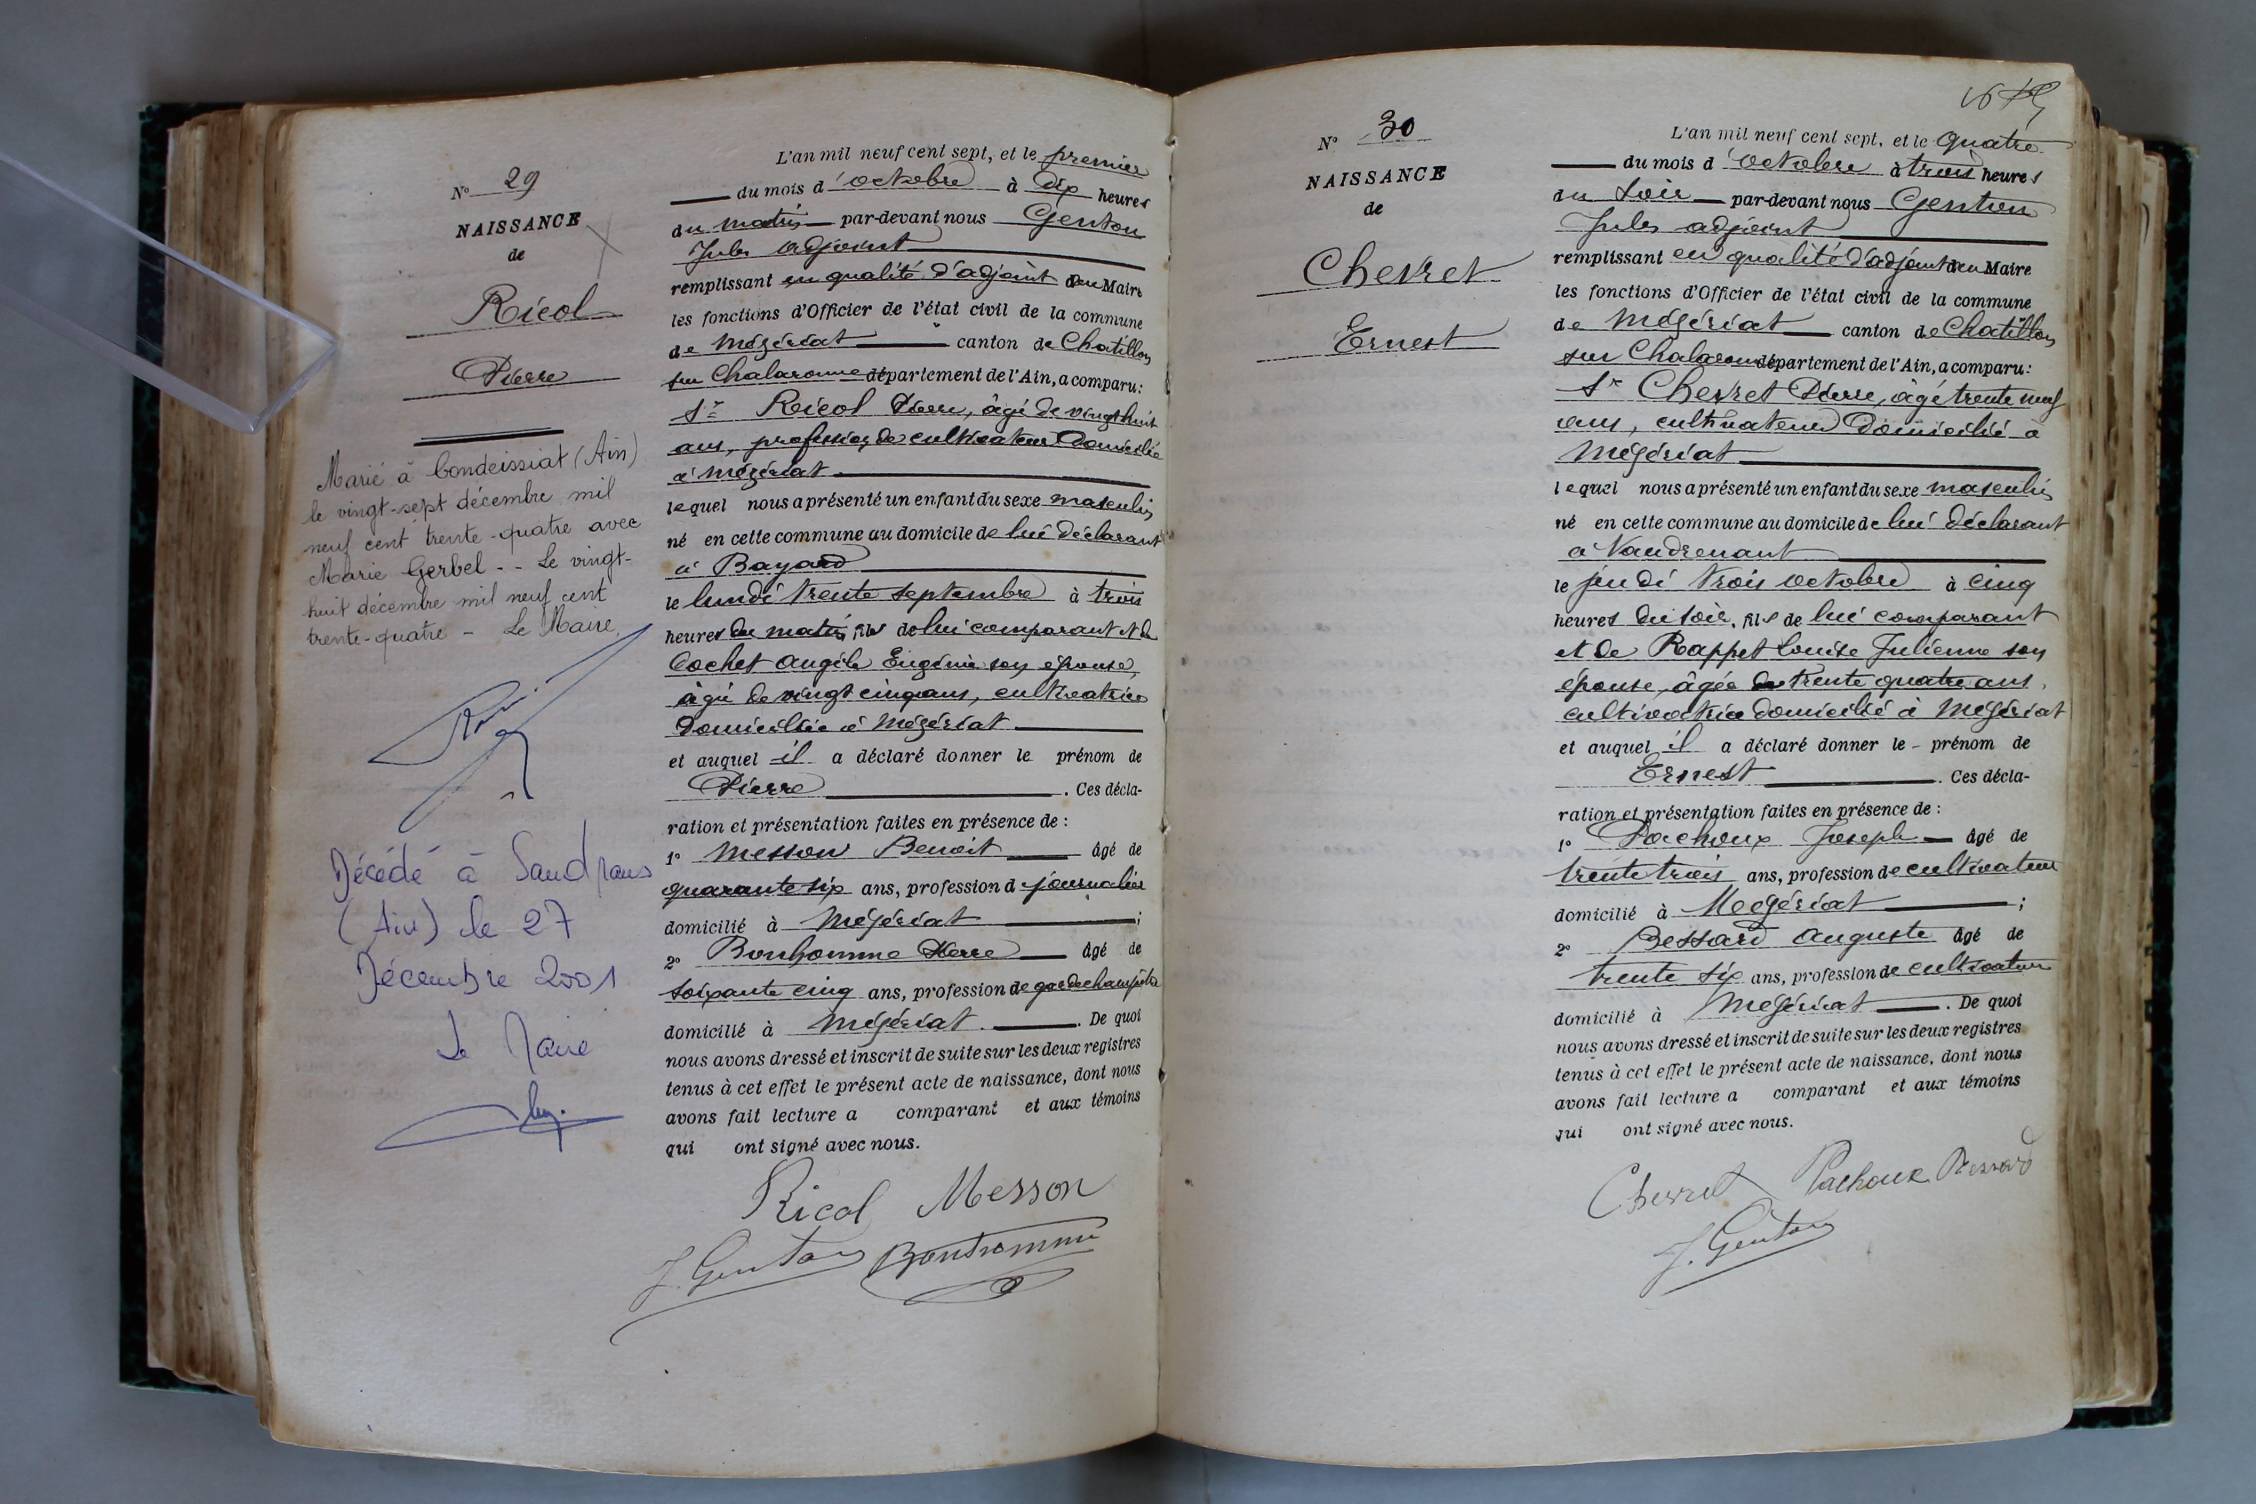 N° 29
NAISSANCE
de
Ricol
Pierre
Marié à Condeissiat (Ain)
le vingt-sept décembre mil
neuf cent trente-quatre avec
Marie Gerbel - - Le vingt-
huit décembre mil neuf cent
trente-quatre - Le Maire
Décédé à Sandrans
(Ain) le 27
Décembre 2001
Le Maire
L'an mil neuf cent sept, et le premier
du mois d'octobre à dix heures
du matin par-devant nous Genton
Jules adjoint
remplissant en qualité d'adjoint du Maire
les fonctions d'Officier de l'état civil de la commune
de Mézériat canton de Chatillon
sur Chalaronne département de l'Ain, a comparu:
Sr Ricol Pierre, âgé de vingt huit
ans, profession de cultivateur Domicilié
à Mézériat
lequel nous a présenté un enfant du sexe masculin
né en cette commune au domicile de lui déclarant
à Bayard
le lundi trente septembre à trois
heures du matin, fils de lui comparant et de
Cochet Angèle Eugénie son épouse,
âgé de vingt cinq ans, cultivatrice
Domiciliée à Mézériat
et auquel il a déclaré donner le prénom de
Pierre . Ces décla-
ration et présentation faites en présence de :
1° Messon Benoit âgé de
quarante six ans, profession de journalier
domicilié à Mézériat ;
2° Bonhomme Pierre âgé de
soixante cinq ans, profession de garde champêtre
domicilié à Mézériat . De quoi
nous avons dressé et inscrit de suite sur les deux registres
tenus à cet effet le présent acte de naissance, dont nous
avons fait lecture a comparant et aux témoins
qui ont signé avec nous.
Ricol Messon
J. Genton Bonhomme
N° 30
NAISSANCE
de
Chevret
Ernest
L'an mil neuf cent sept, et le quatre
du mois d'octobre à trois heures
du soir par-devant nous Genton
Jules adjoint
remplissant en qualité d'adjoint du Maire
les fonctions d'Officier de l'état civil de la commune
de Mézériat canton de Chatillon
sur Chalaronne département de l'Ain, a comparu:
Sr Chevret Pierre, âgé trente neuf
ans, cultivateur Domicilié à
Mézériat
lequel nous a présenté un enfant du sexe masculin
né en cette commune au domicile de lui déclarant
à Vaudrenant
le jeudi trois octobre à cinq
heures du soir, fils de lui comparant
et de Rappet Louise Julienne son
épouse, âgée de trente quatre ans,
cultivatrice domicilié à Mézériat
et auquel il a déclaré donner le prénom de
Ernest . Ces décla-
ration et présentation faites en présence de :
1° Pachoux Joseph âgé de
trente trois ans, profession de cultivateur
domicilié à Mézériat ;
2° Bessard Auguste âgé de
trente six ans, profession de cultivateur
domicilié à Mézériat . De quoi
nous avons dressé et inscrit de suite sur les deux registres
tenus à cet effet le présent acte de naissance, dont nous
avons fait lecture a comparant et aux témoins
qui ont signé avec nous.
Chevret Pachoux Bessard
J. Genton